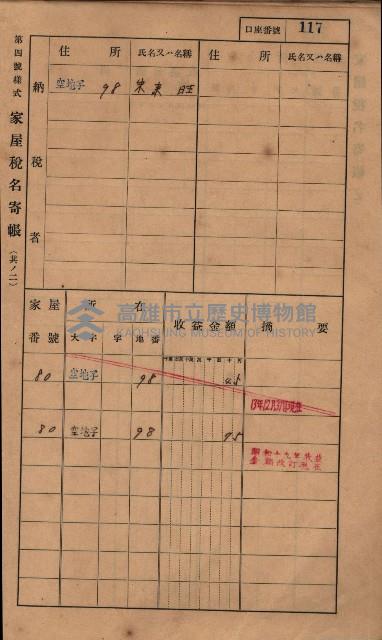 口座番號 117
第四號樣式 家屋稅名寄帳 (其ノ二)
納稅者
住所 氏名又ハ名稱 住所 氏名又ハ名稱
空地子 98 朱東旺
家屋番號 所在 收益金額 摘要
大字 字 地番
80 空地子 98 45
13年12月31日現在
80 空地子 98 75
高雄市立歷史博物館
KAOHSIUNG MUSEUM OF HISTORY